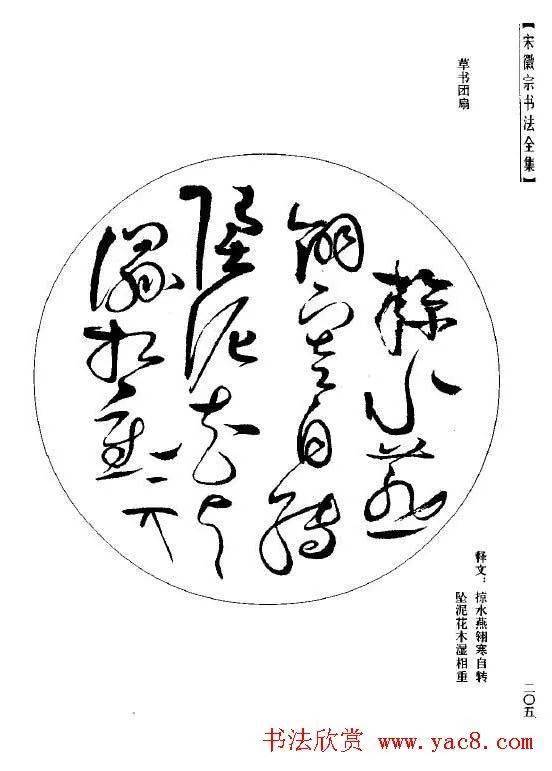 【宋徽宗书法全集】
草书团扇
掠水燕
翎寒自转
坠泥花片
湿相重
释文：掠水燕翎寒自转
坠泥花木湿相重
二〇五
书法欣赏
www.yac8.com